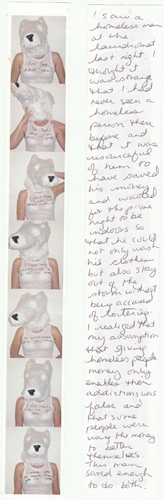 I saw a
homeless man
at the
laundromat
last night.
Thought it
was strange
that I had
never seen a
homeless
person there
before and
that it was
resourceful
of him to
have saved
his money
and waited
for the prime
night to be
indoors so
that he could
not only wash
his clothes
but also stay
out of the
storm without
being accused
of loitering.
I realized that
my assumption
that giving
homeless people
money only
enables their
addictions was
false and
that some
people were
using the money
to better
themselves.
This man
saved enough
to do both.